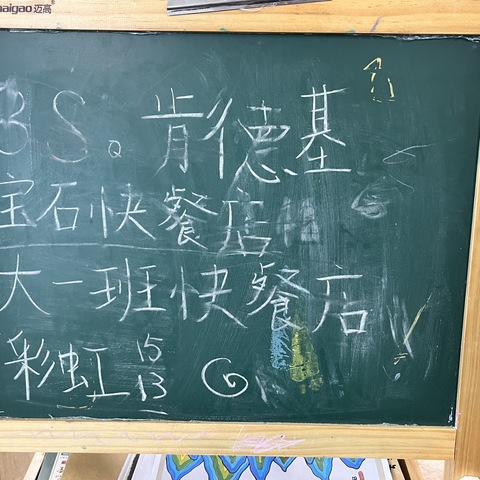 aigao迈高
BS。肯德基
宝石快餐店
大一班快餐店
彩虹 15
13